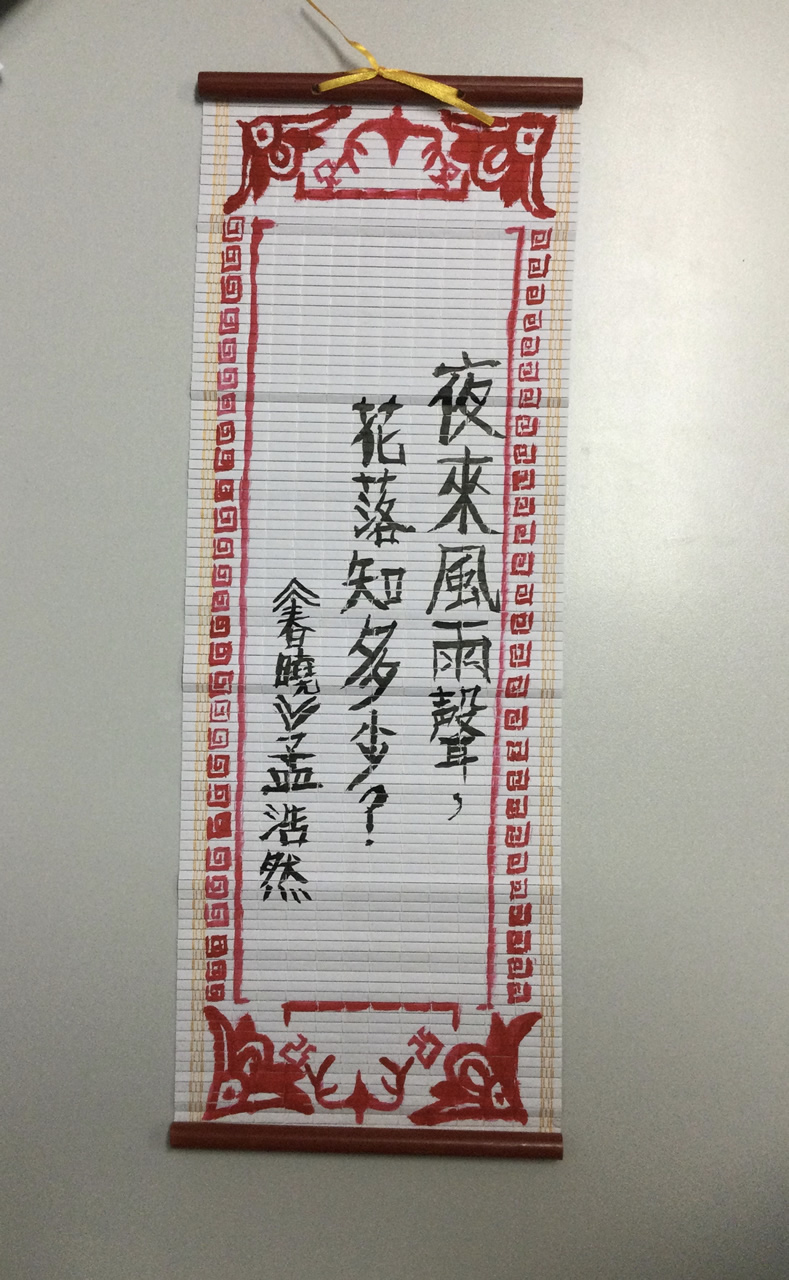 夜來風雨聲，
花落知多少？
《春曉》孟浩然